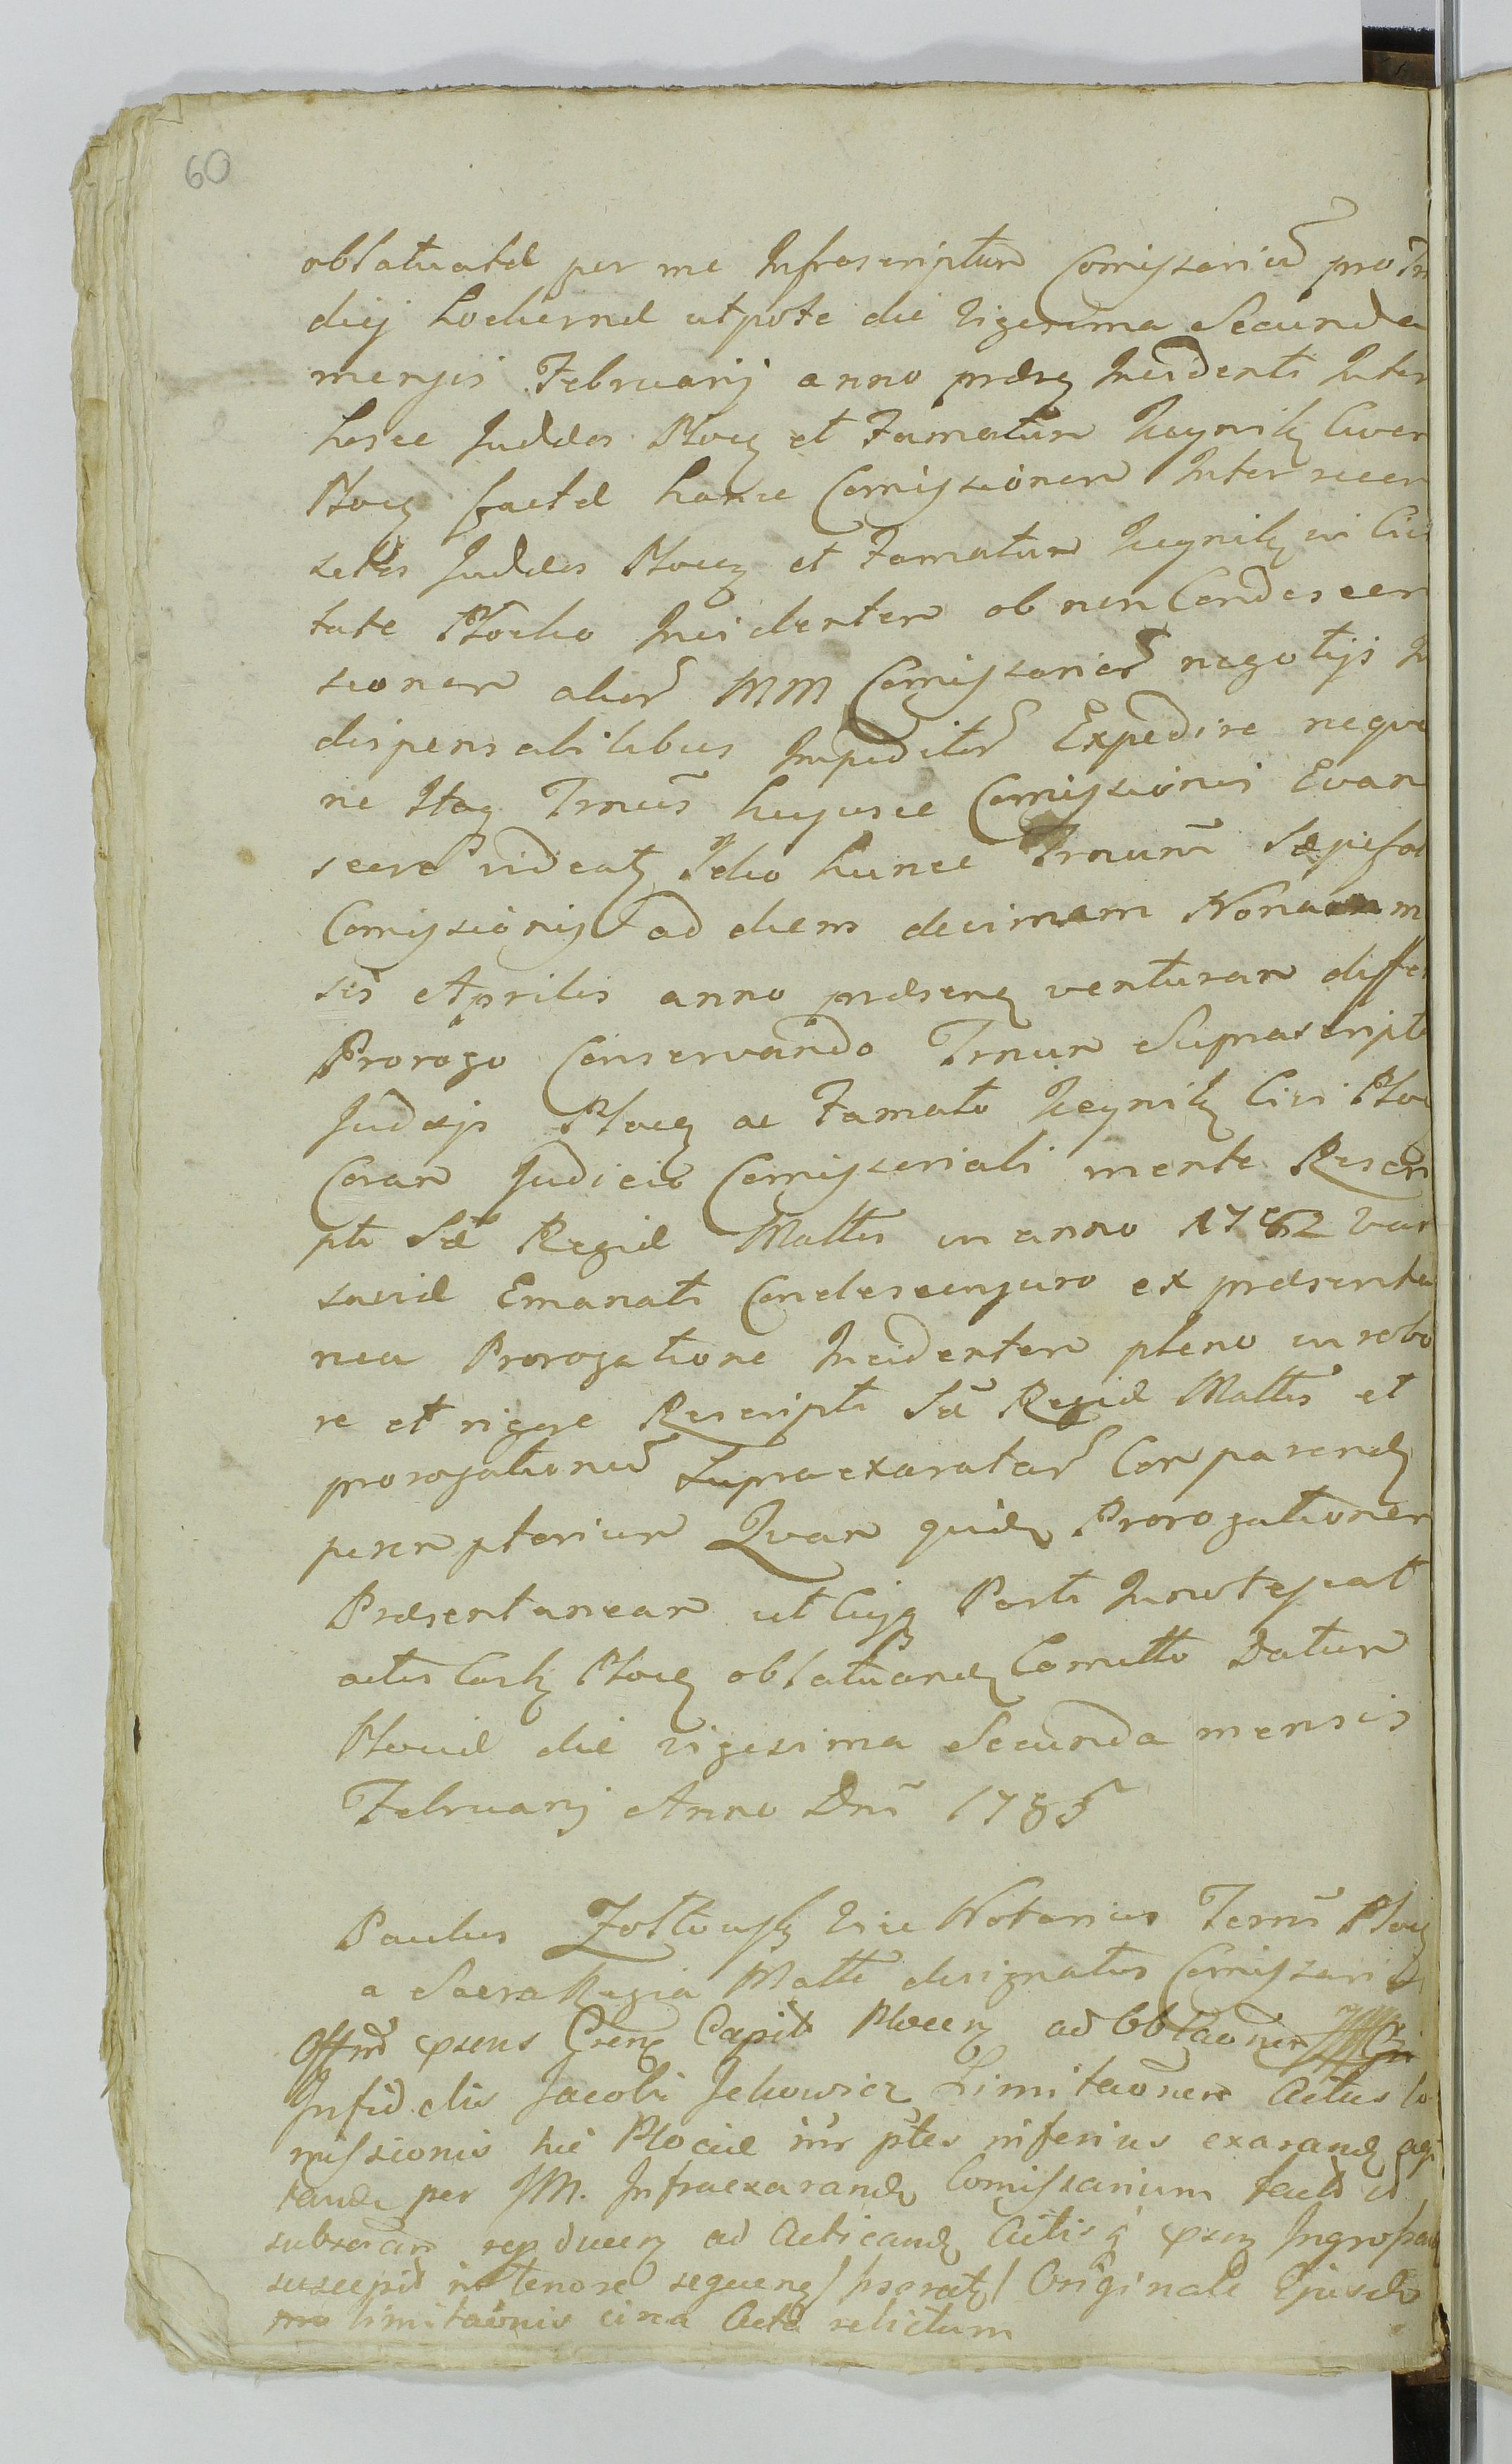 60
oblatuatæ per me Infrascriptum Comissariū pro
diej hodiernæ utpote die Vigesima Secunda
mensis Februarij anno præsez Incidenti Inter
hosce Judæos Plocz et Famatum Civem
Plocz factæ hance Comissionem Inter
Judæos Plocz et Famatum in Civi
tate Plocko Incidentem ob non Condescen
sionem alior̄ MM Comissarior̄ negotijs In
dispensabilibus Impeditor̄ Expedire neque
ne Itaq Trnus hujusce Comissionis Evan
scere videatz Ideo hunce Trnum̄ Sæpefat
Comissionis ad diem decimam Nonam m
sis Aprilis anno præsenz venturam differ
Prorogo Conservando Trnum Suprascripti
Judæjs Plocz ac Famato Civi Ploc
Coram Judicio Comissoriali mente Rescri
pti Sæ Regiæ Mattis in anno 1782 Var
saviæ Emanati Condescensuro ex præsenta
nea Prorogatione Incidentem pleno in robo
re et vigore Rescripti Sæ Regiæ Mattis et
prorogationū Supraexaratar̄ Comparendz
peremptorium Quam quidz Prorogationem
Præsentaneam ut Cujq Parti Innotescat
actis Castz Plocz oblatuandz Comitto Datum
Plociæ die vigesima Secunda mensis
Februarij Anno Dnī 1785
Paulus Vice Notarius Terrs Plocz
a Sacra Regia Matte designatus Comissari
Offm̄ psens Capit Plocen ad Oblaōnem
Infidelis Jacobi Jelowicz Limitaōnem Actus Co
missionis hic Plociæ int̄ ptes inferius exarandz agi
tandz per JM. Infraexarandz Comissarium factæ
ad Acticandz Actisq psenz Ingrossandz
suscepit in tenore sequenz Originale Ejusdz
limitaōnis circa Acta relictum